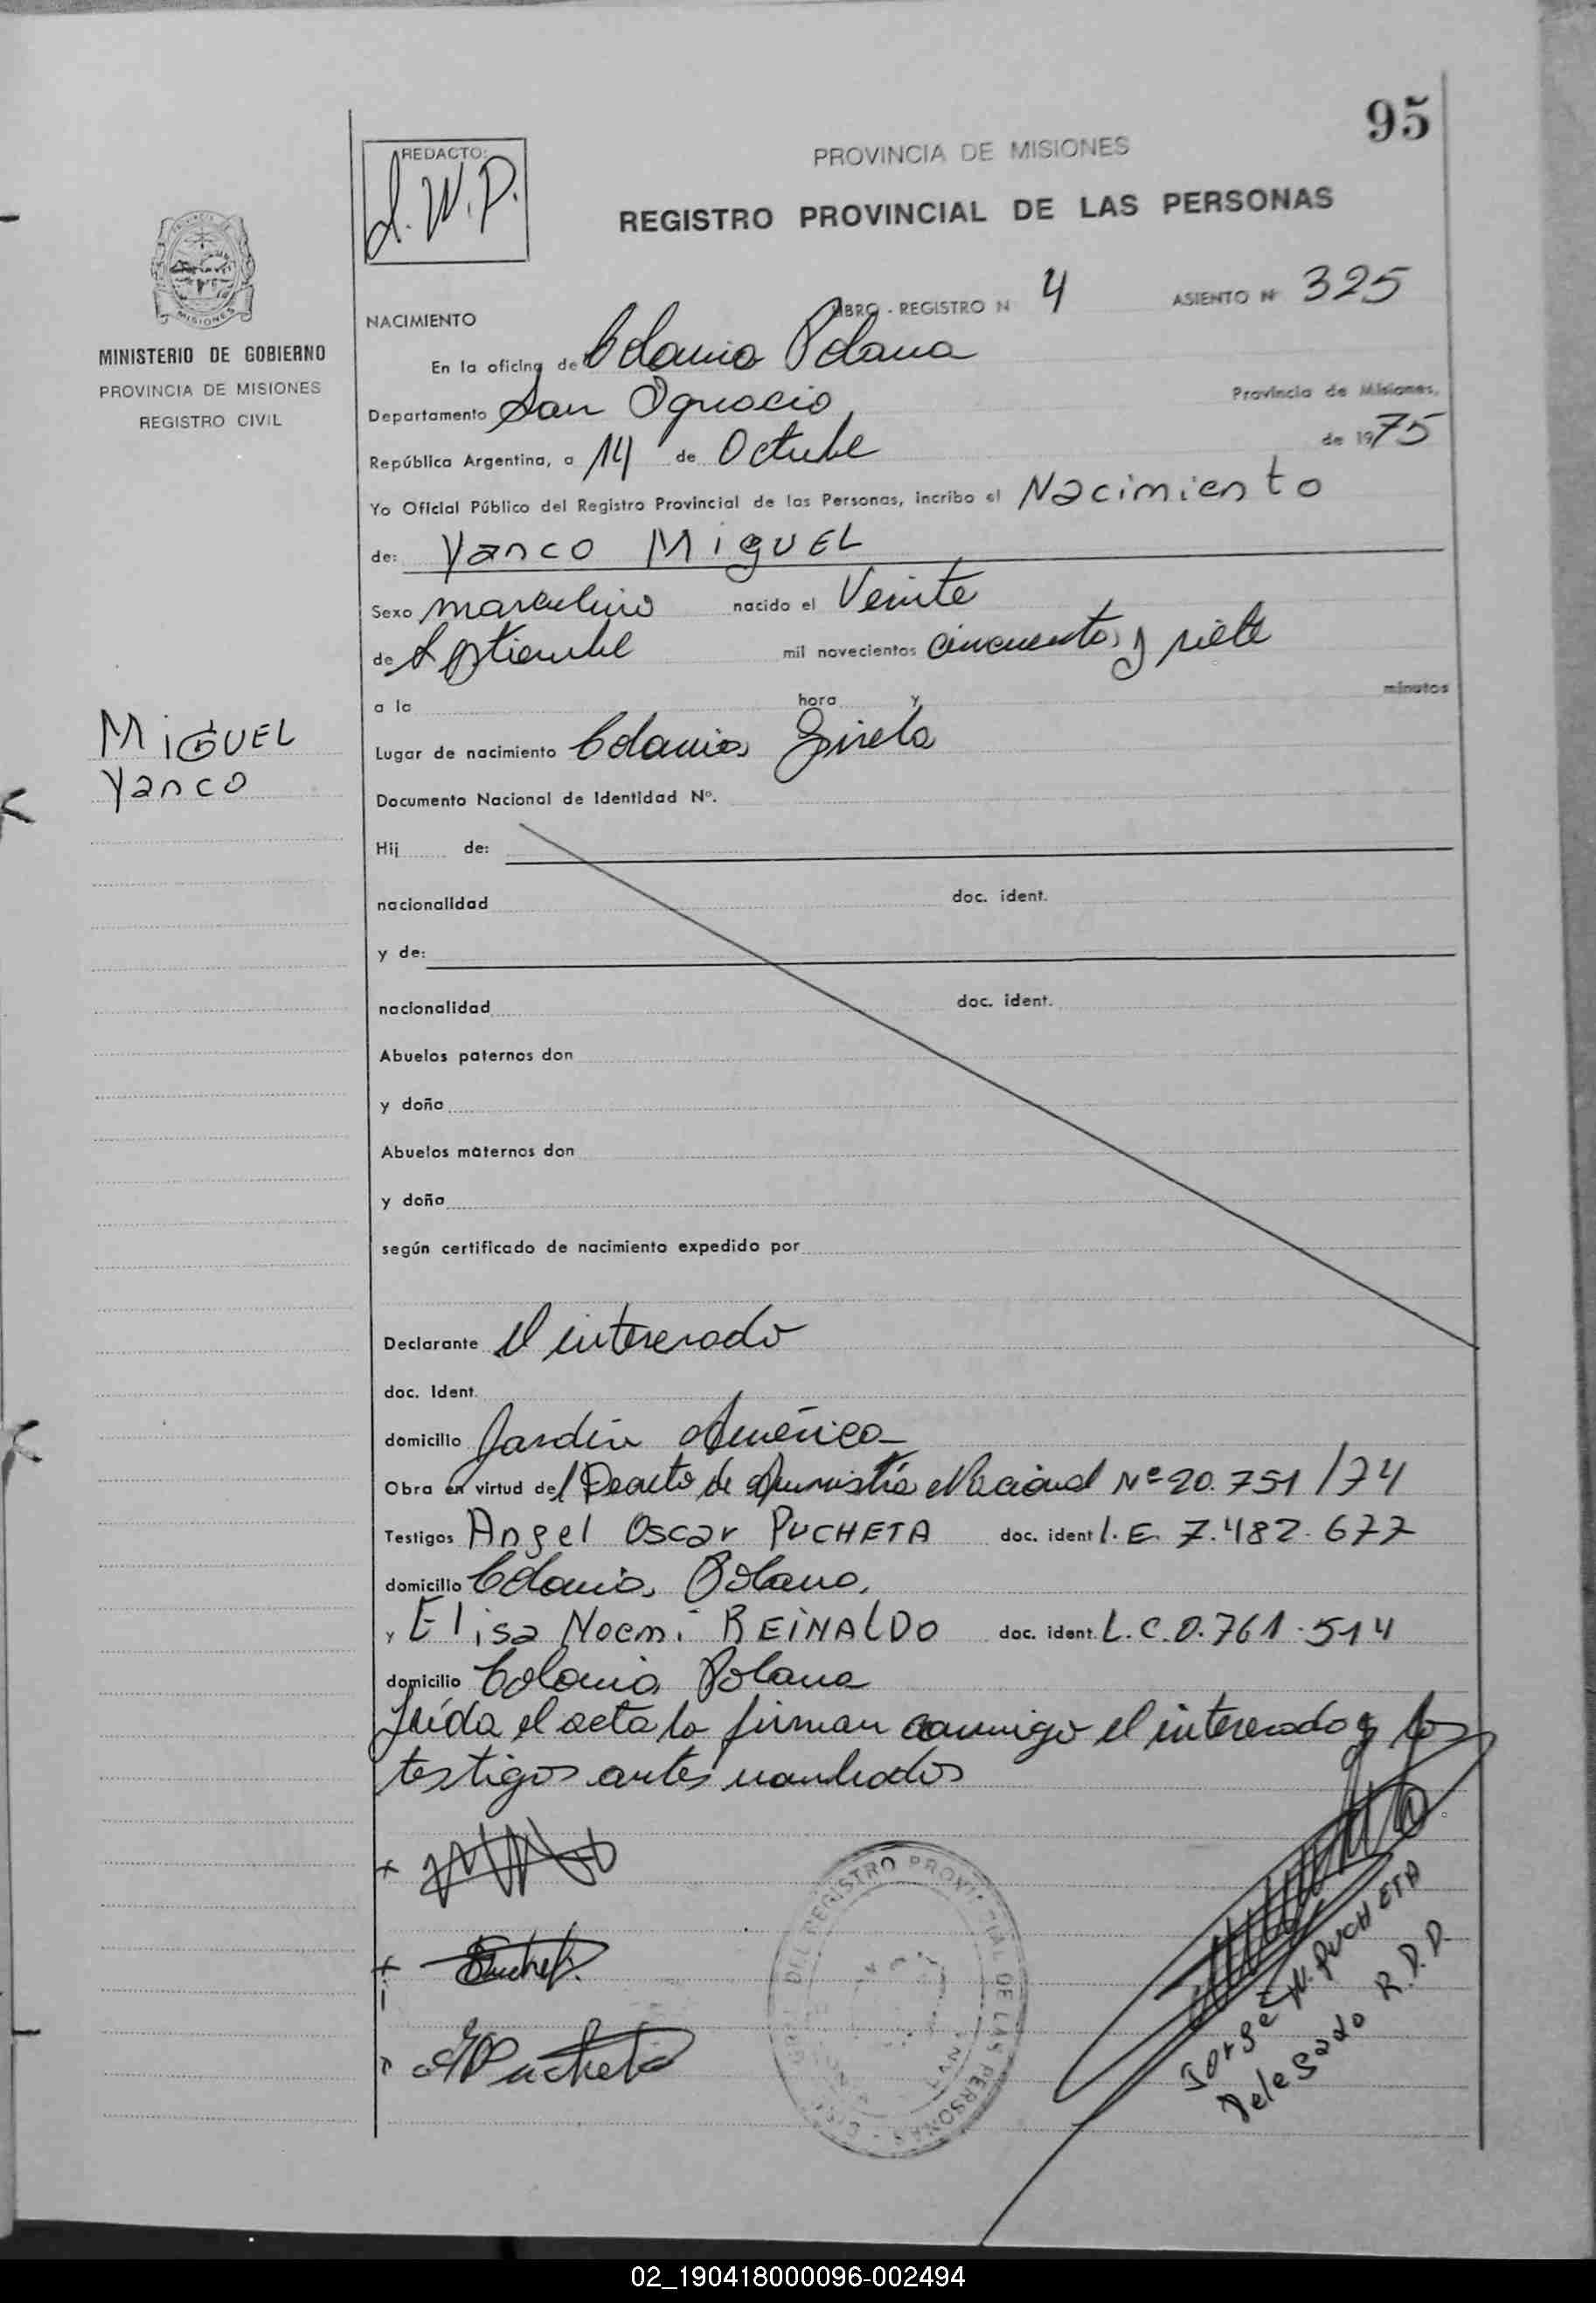 95
REDACTO:
J.W.P.
PROVINCIA DE MISIONES
REGISTRO PROVINCIAL DE LAS PERSONAS
MISIONES
MINISTERIO DE GOBIERNO
PROVINCIA DE MISIONES
REGISTRO CIVIL
LIBRO - REGISTRO N 4 ASIENTO Nº 325
NACIMIENTO
En la oficina de Colonia Polana
Departamento San Ignacio, Provincia de Misiones,
República Argentina, a 14 de Octubre de 1975
Yo Oficial Público del Registro Provincial de las Personas, incribo el Nacimiento
de: Yanco MiguEL
Sexo masculino nacido el Veinte
de Septiembre mil novecientos cincuenta y siete
a la hora y minutos
MiGUEL
Yanco
Lugar de nacimiento Colonia Gisela
Documento Nacional de Identidad Nº.
Hij de:
nacionalidad doc. ident.
y de:
nacionalidad doc. ident.
Abuelos paternos don
y doña
Abuelos maternos don
y doña
según certificado de nacimiento expedido por
Declarante El interesado
doc. Ident.
domicilio Jardín América
Obra en virtud del Decreto de Amnistía Nacional Nº 20.751/74
Testigos Angel Oscar PUCHETA doc. ident L.E. 7.482.677
domicilio Colonia Polana,
y Elisa Noemi REINALDO doc. ident. L.C.0.761.514
domicilio Colonia Polana
Leída el acta la firman conmigo el interesado y los
testigos antes nombrados
DEL REGISTRO PROVINCIAL DE LAS PERSONAS
Jorge W. PUCHETA
Delegado R.D.D.
02_190418000096-002494